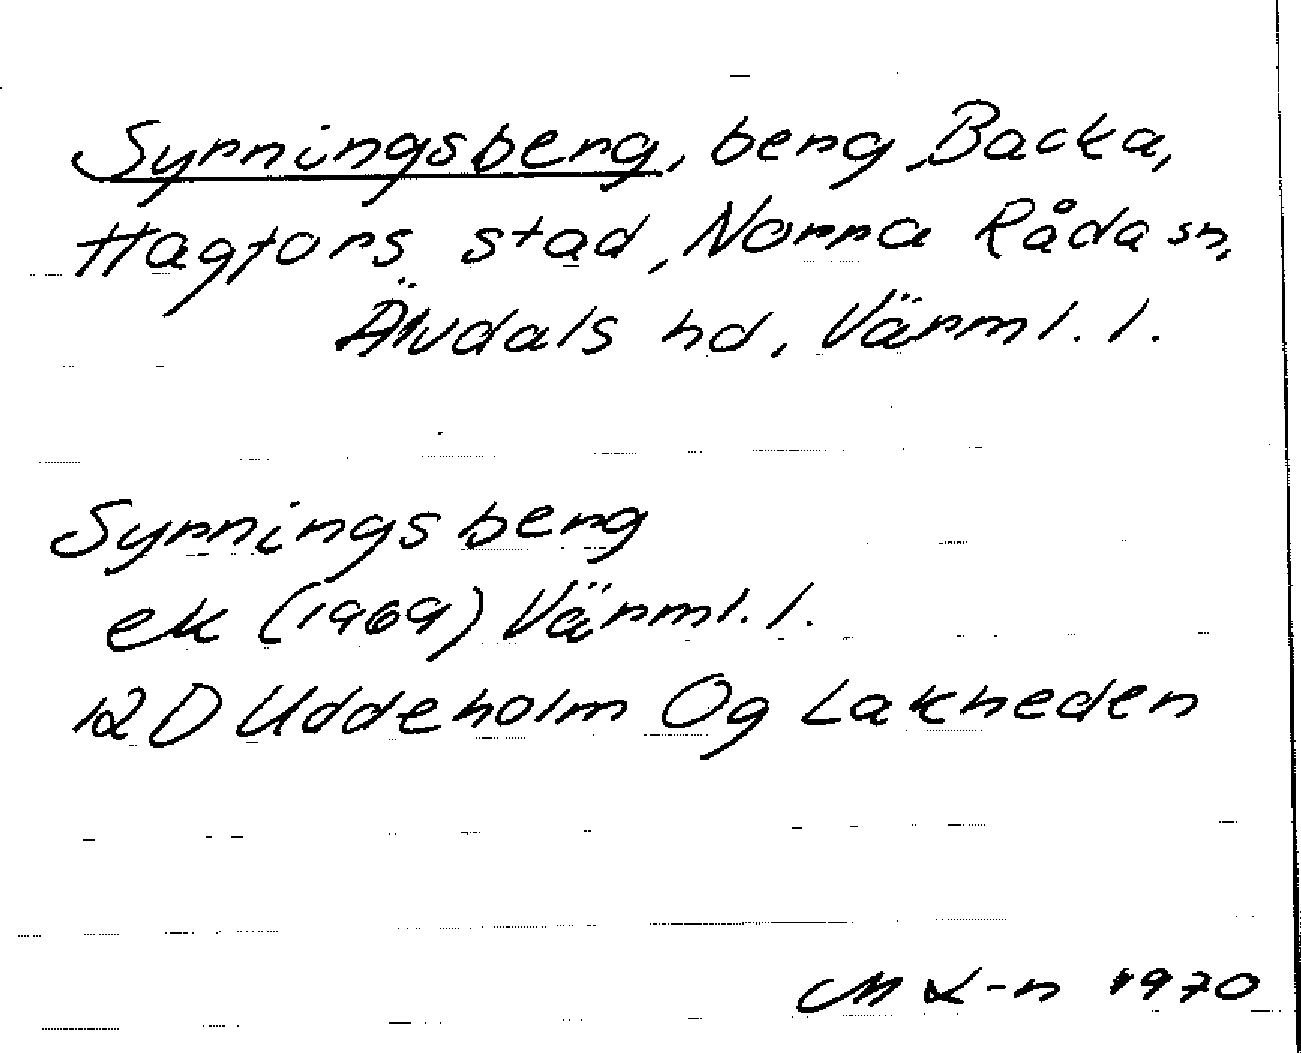 Syrningsberg, berg, Backa,
Hagfors stad, Norra Råda sn,
Älvdals hd, Värml. l.
Syrningsberg
ek (1969) Värml. l.
12 D Uddeholm 0g Lakheden
M L-n 1970